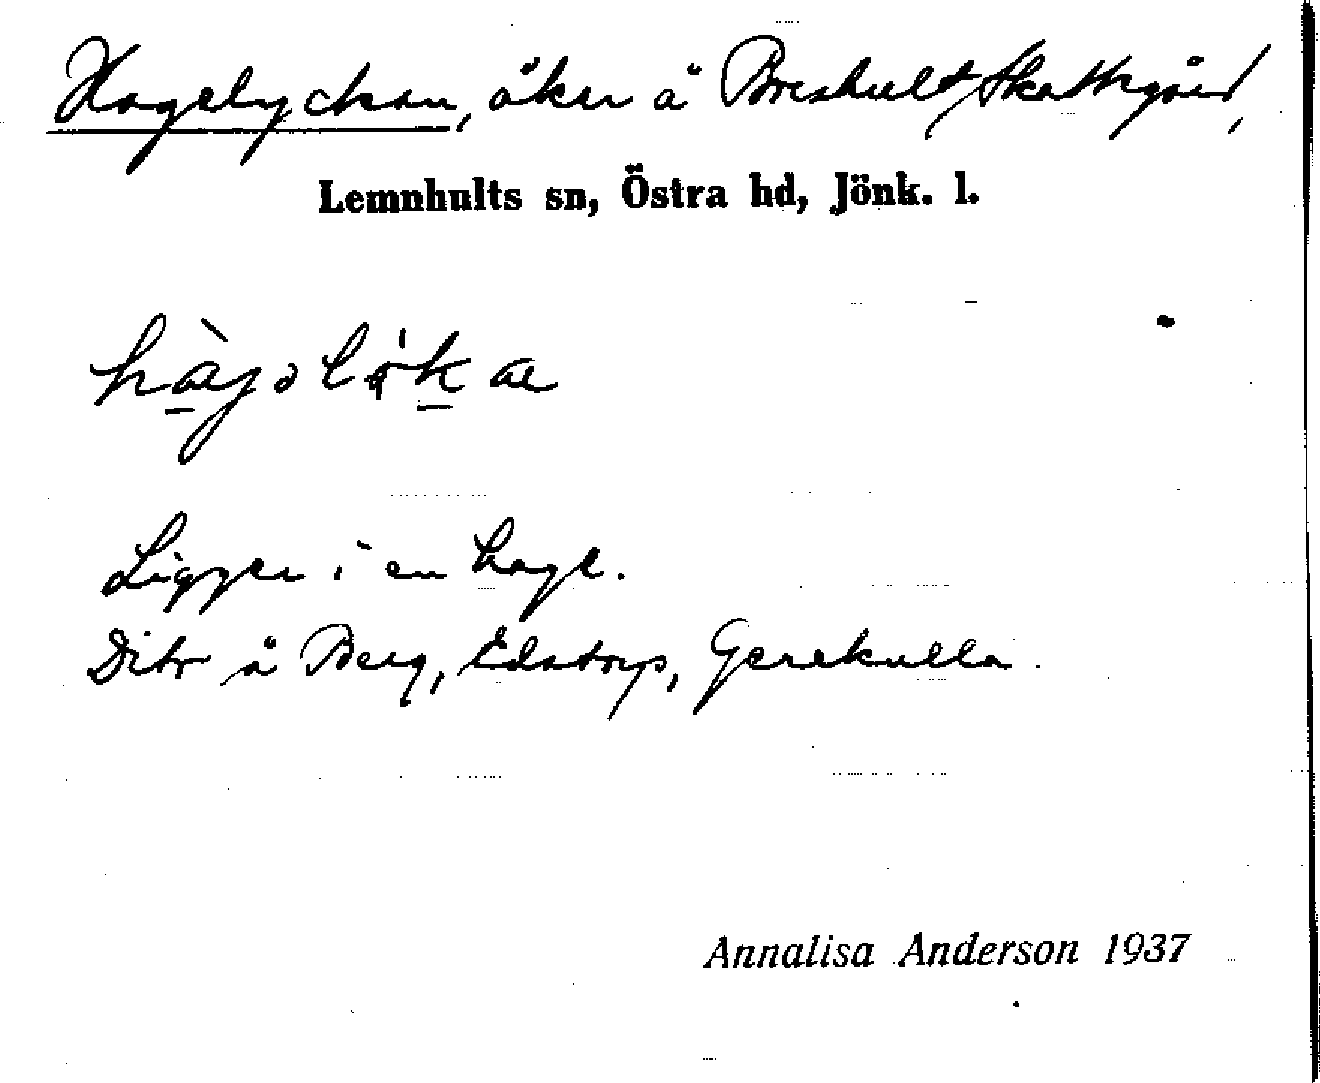 Hagelyckan, åker å Breshult Skattegård,
Lemnhults sn, Östra hd, Jönk. l.
Ligger i en hage.
Dito å Berg, Edstorp, Gerekulla.
Annalisa Anderson 1937